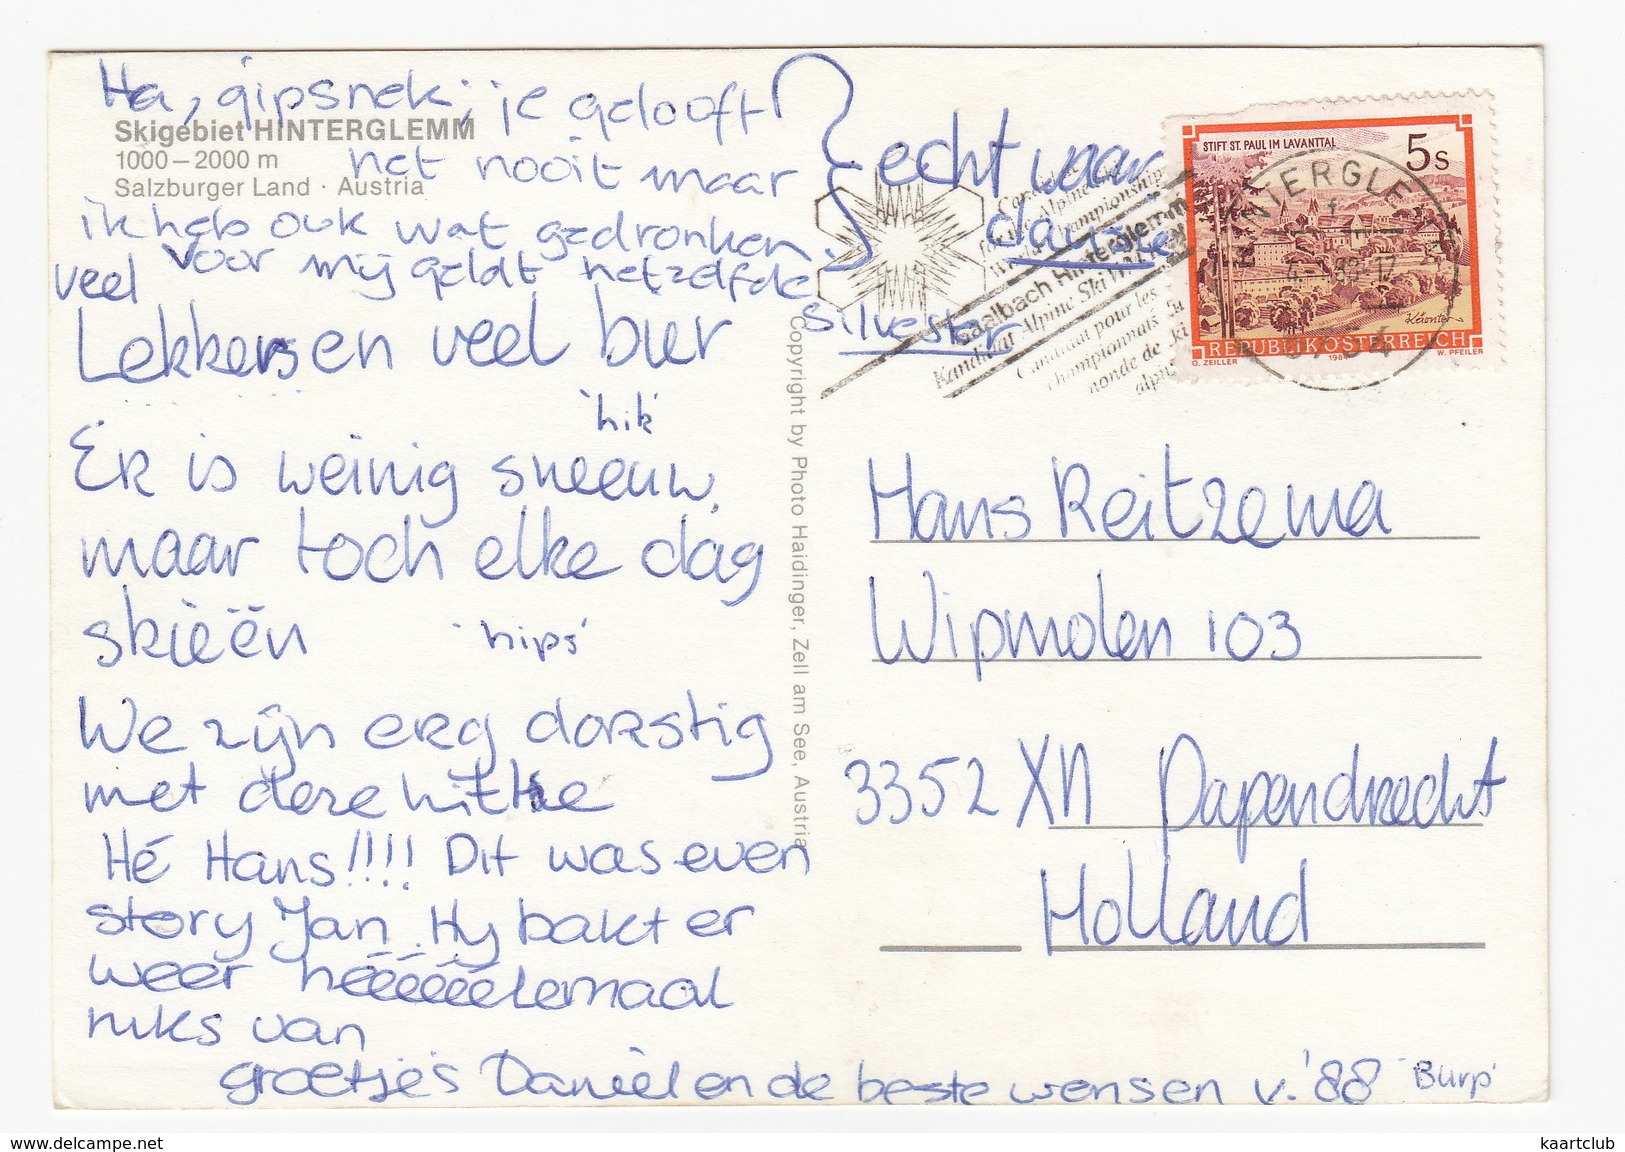 Ha, gipsnek; je gelooft
Skigebiet HINTERGLEMM
1000 – 2000 m
Salzburger Land · Austria
het nooit maar
ik heb ook wat gedronken
veel voor mij geldt hetzelfde
echt waar
Silvester
Lekker en veel bier
'hik'
Er is weinig sneeuw,
maar toch elke dag
skieën 'hips'
We zijn erg dorstig
met deze hitte
Hé Hans!!!! Dit was even
story Jan. Hy bakt er
weer hééééééélemaal
niks van
groetjes Daniël en de beste wensen v. '88 'Burp'
Copyright by Photo Haidinger, Zell am See, Austria
Saalbach Hinterglemm
Kandidat Alpine Ski
Candidat pour les
championnats
monde de ski
STIFT ST. PAUL IM LAVANTTAL
5 S
REPUBLIK ÖSTERREICH
O. ZEILLER
W. PFEILER
HINTERGLEMM
Hans Reitzema
Wipmolen 103
3352 XN Papendrecht
Holland
www.delcampe.net
kaartclub